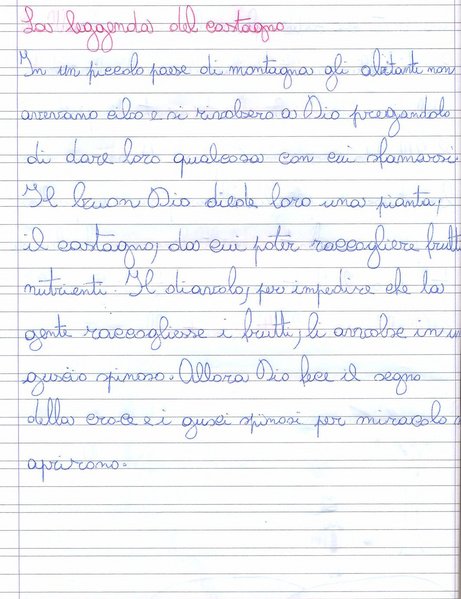 La leggenda del castagno
In un piccolo paese di montagna gli abitanti non
avevano cibo e si rivolsero a Dio pregandolo
di dare loro qualcosa con cui sfamarsi
Il buon Dio diede loro una pianta,
il castagno, da cui poter raccogliere frutti
nutrienti. Il diavolo, per impedire che la
gente raccogliesse i frutti, li avvolse in un
guscio spinoso. Allora Dio fece il segno
della croce e i gusci spinosi per miracolo s
aprirono.